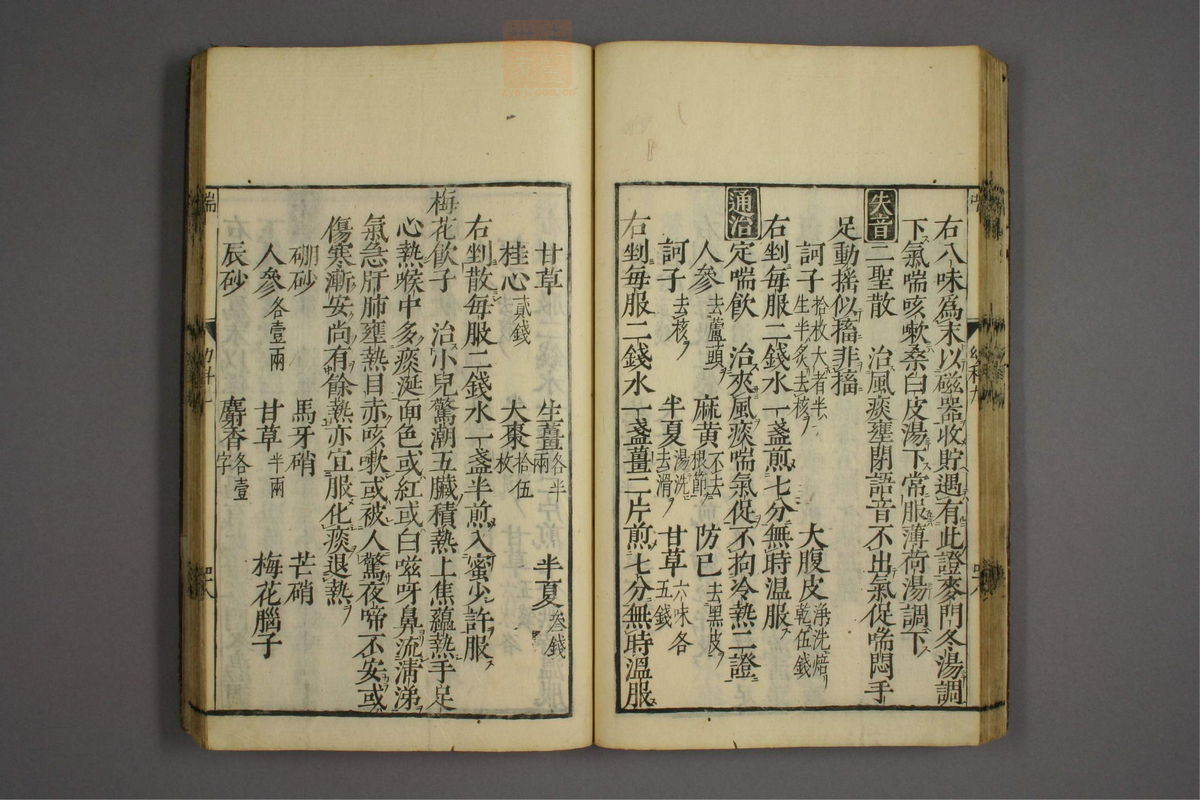 右八味為末以磁器收貯遇有此證麥門冬湯調
下氣喘咳嗽桑白皮湯下常服薄荷湯調下
失音 二聖散 治風痰壅閉語音不出氣促喘悶手
足動搖似搐非搐
訶子拾枚大者半生半炙去核 大腹皮淨洗焙乾伍錢
右剉每服二錢水一盞煎七分無時溫服
通治 定喘飲 治夾風痰喘氣促不拘冷熱二證
人參去蘆頭 麻黃不去根節 防已去黑皮
訶子去核 半夏湯洗去滑 甘草六味各五錢
右剉每服二錢水一盞薑二片煎七分無時溫服
甘草 生薑各半兩 半夏叁錢
桂心貳錢 大棗拾伍枚
右剉散每服二錢水一盞半煎入蜜少許服
梅花飲子 治小兒驚潮五臟積熱上焦蘊熱手足
心熱喉中多痰涎面色或紅或白嗞呀鼻流清涕
氣急肝肺壅熱目赤咳嗽或被人驚夜啼不安或
傷寒漸安尚有餘熱亦宜服化痰退熱
硼砂 馬牙硝 芒硝
人參各壹兩 甘草半兩 梅花腦子
辰砂 麝香各壹字